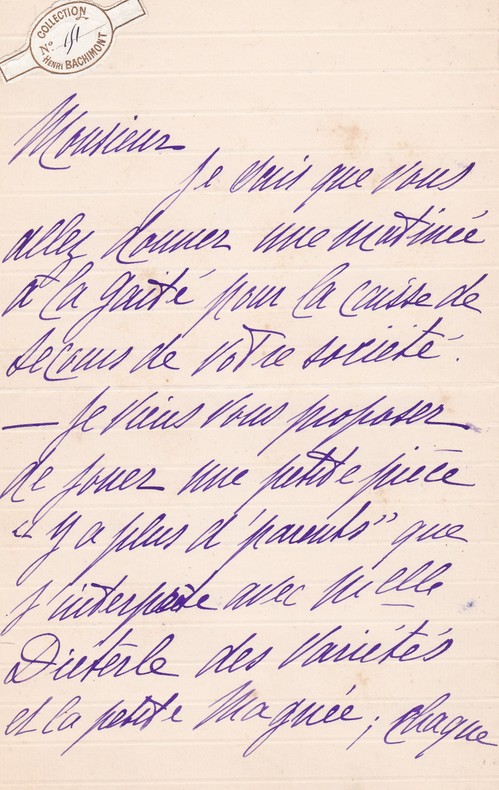 COLLECTION
No. 151
HENRI BACHIMONT
Monsieur
Je sais que vous
allez donner une matinée
à la Gaité pour la caisse de
secours de votre société.
— Je viens vous proposer
de jouer une petite pièce
"Y a plus d'parents" que
j'interprète avec Melle
Diéterle des Variétés
et la petite Magnée ; chaque